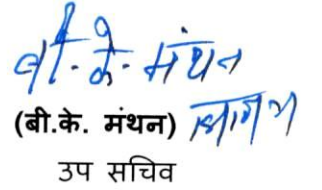 बी. के. मंथन
(बी.के. मंथन)
उप सचिव